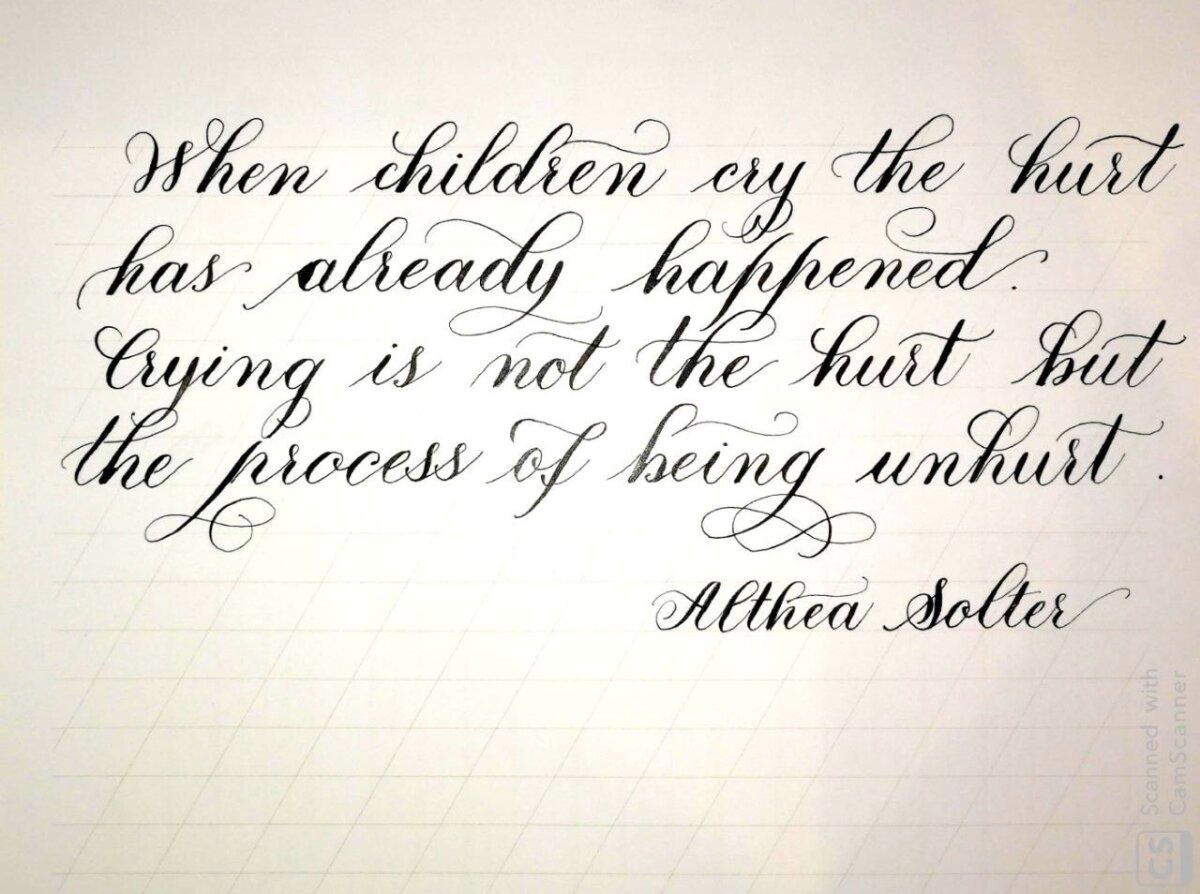 When children cry the hurt
has already happened.
Crying is not the hurt but
the process of being unhurt.
Althea Solter
Scanned with
CamScanner
CS